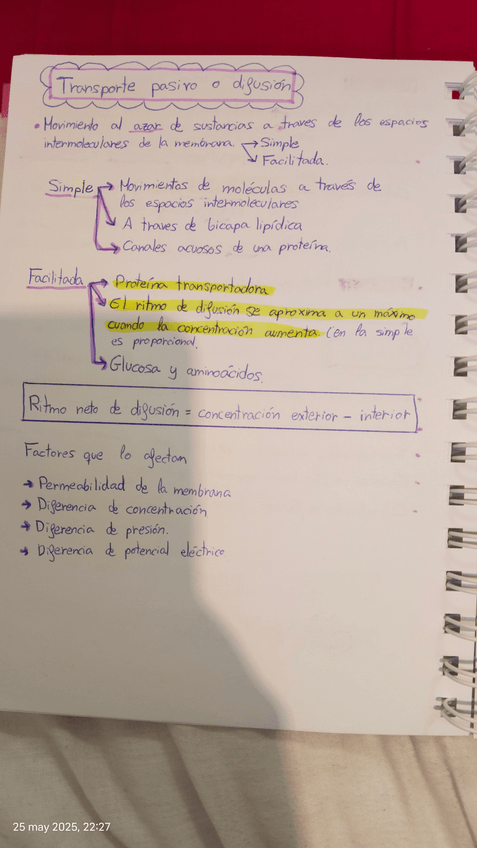 Transporte pasivo o difusión
• Movimiento al azar de sustancias a traves de los espacios
intermoleculares de la membrana. → Simple
→ Facilitada.
Simple → Movimientos de moléculas a través de
los espacios intermoleculares
→ A traves de bicapa lipídica
→ Canales acuosos de una proteína.
Facilitada → Proteína transportadora
→ El ritmo de difusión se aproxima a un máximo
cuando la concentración aumenta. (en la simple
es proporcional.
→ Glucosa y aminoácidos.
Ritmo neto de difusión = concentración exterior - interior
Factores que lo afectan
→ Permeabilidad de la membrana
→ Diferencia de concentración
→ Diferencia de presión.
→ Diferencia de potencial eléctrico
25 may 2025, 22:27